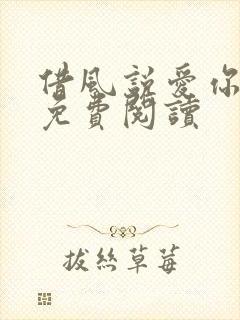 借風說愛你
免費閱讀
拔絲草莓